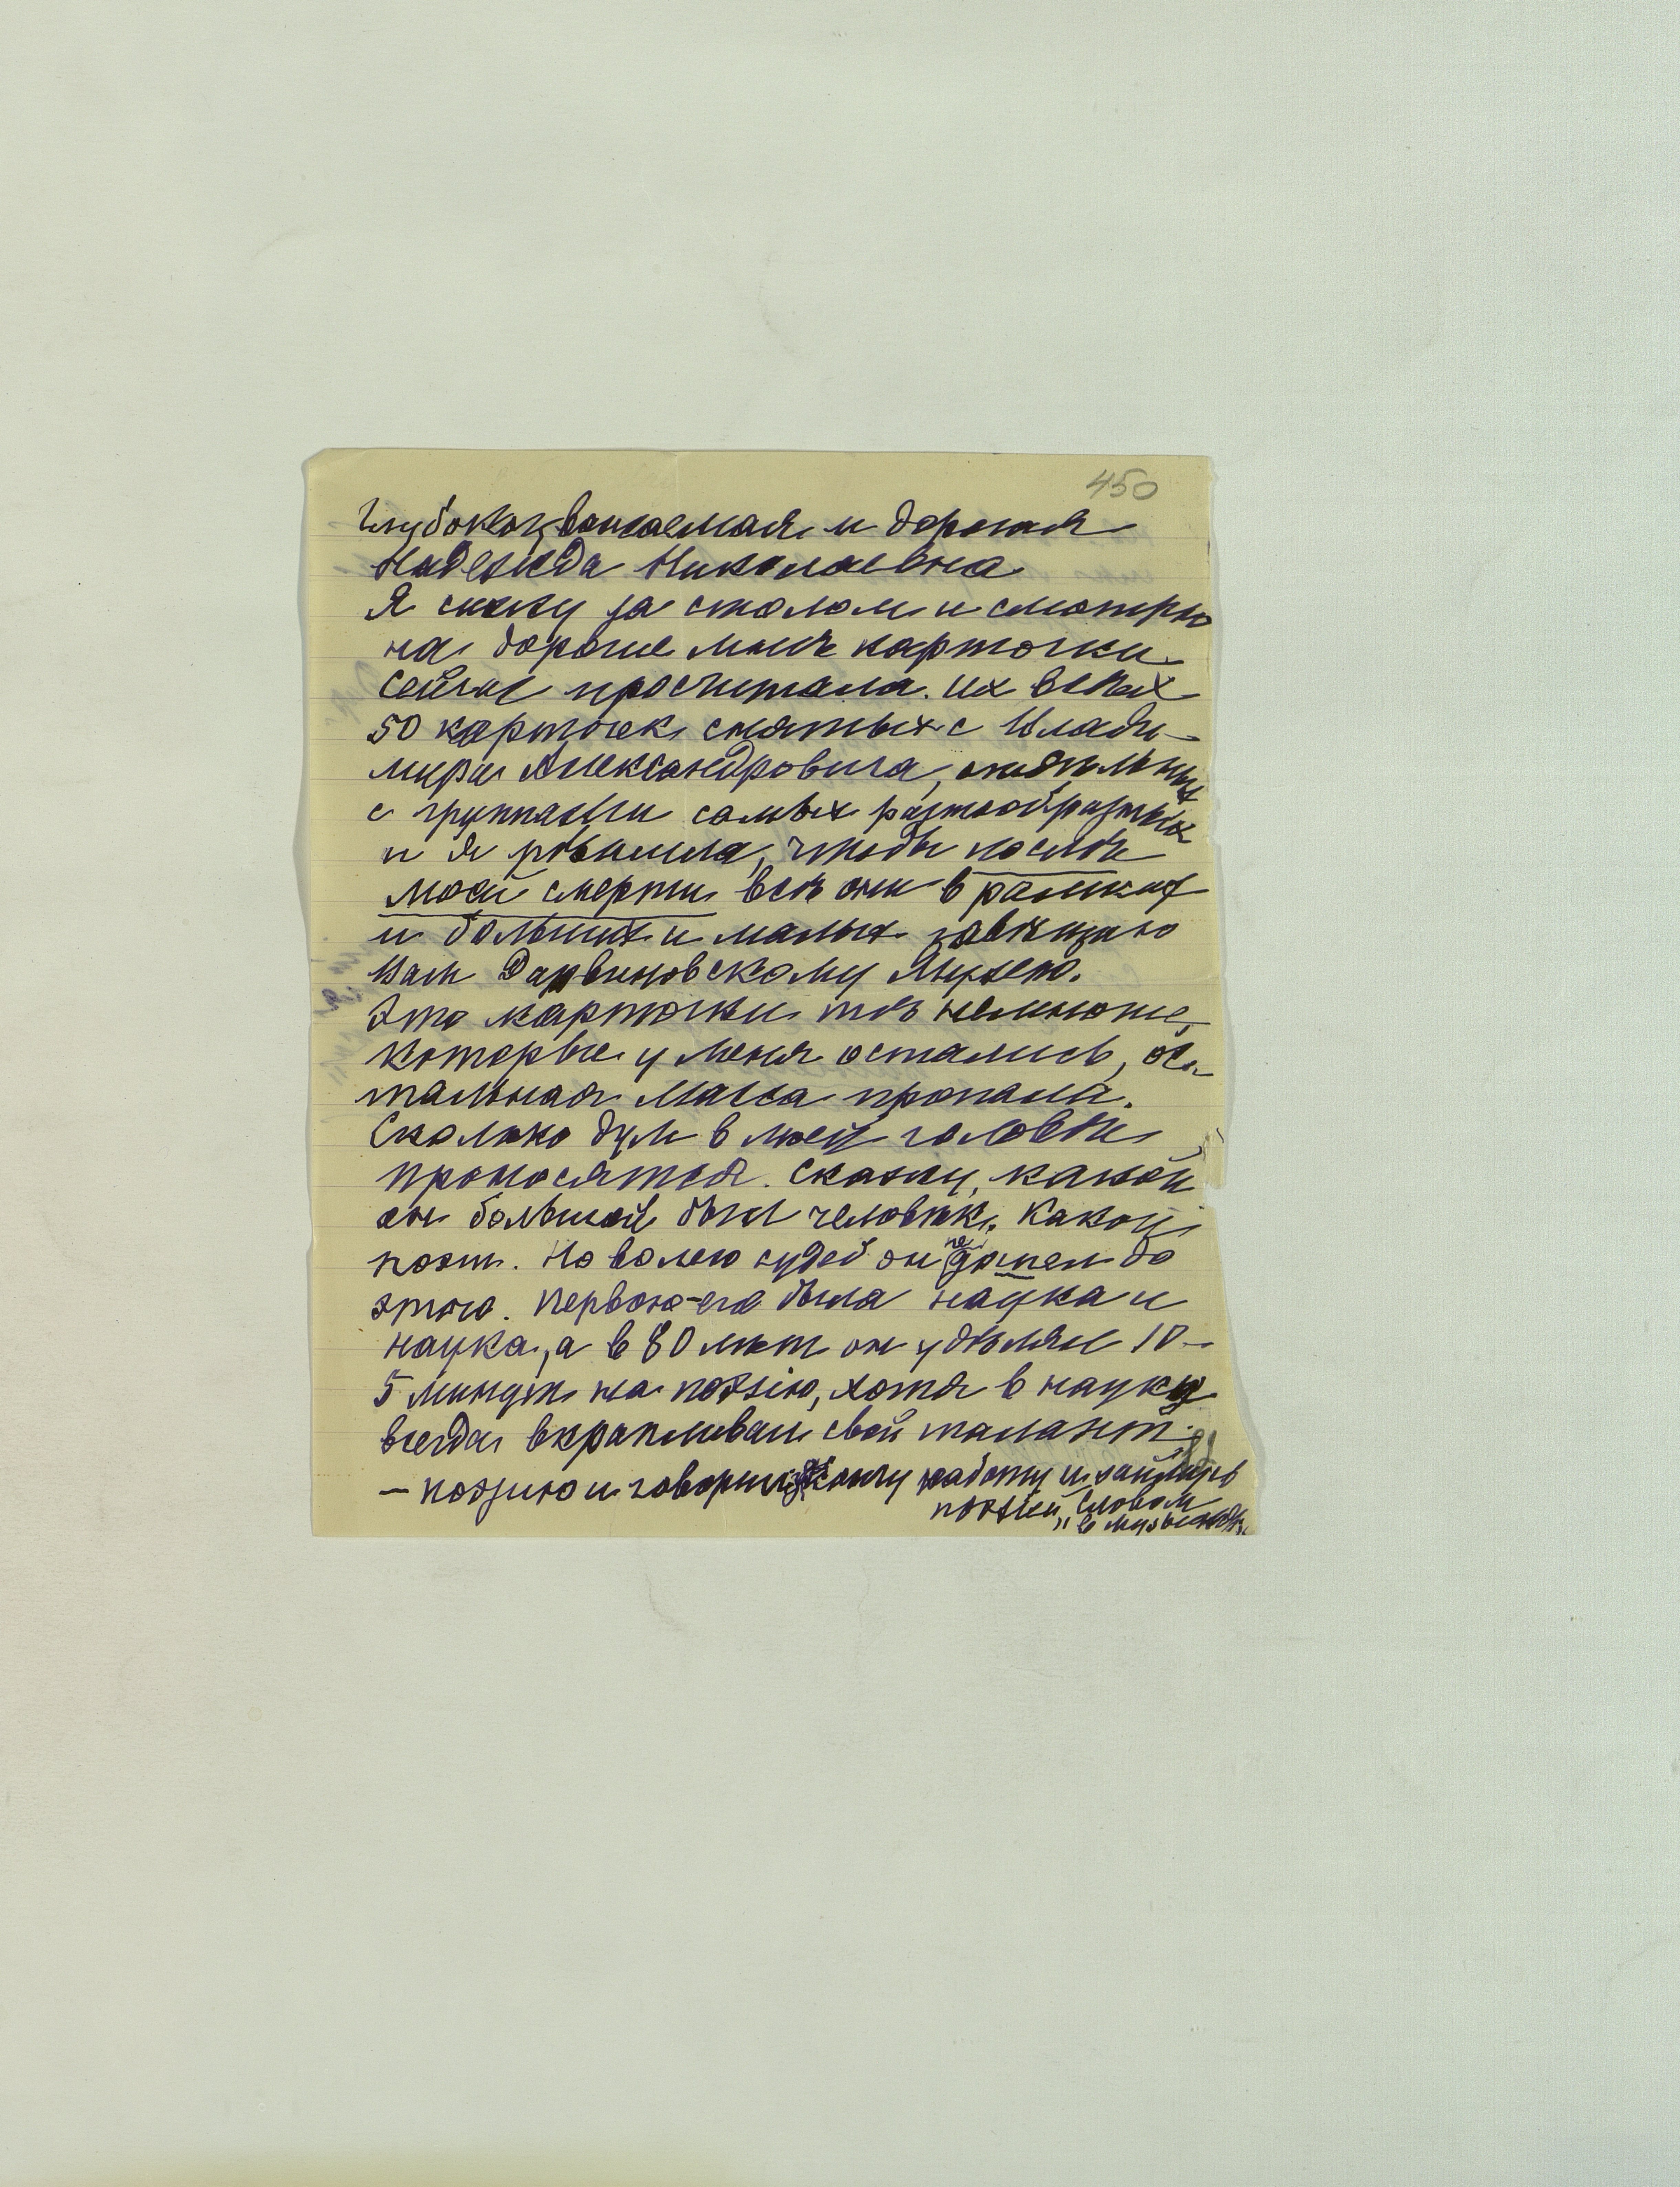 450
Глубокоуважаемая и дорогая
Надежда Николаевна
Я сижу за столом и смотрю
на дорогие мнѣ карточки
Сейчас просчитала. Их всѣх
50 карточек снятых с Влади-
мира Александровича, отдѣльных
с группами самых разнообразных
и я рѣшила, чтобы послѣ
моей смерти всѣ они в рамках
и больших и малых завѣщаю
Вам Дарвиновскому Музею.
Это карточки тѣ немногие,
которые у меня остались, ос-
тальная масса пропала.
Сколько дум в моей головѣ
проносятся. Скажу, какой
он большой был человѣк. Какой
поэт. Но волею судеб он не дошел до
этого. Первою его была наука и
наука, а в 80 лѣт он удѣлял 10-
5 минут на поэзію, хотя в науку
всегда вкрапливал свой талант
- поэзию и говорил: кончу работу и займусь
поэзіей, словом
"в музыкѣ".